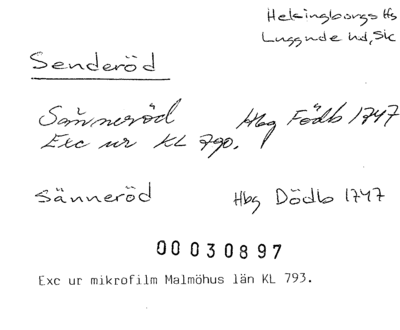 Helsingborgs lfs
Luggude hd, Sk
Senderöd
Sänneröd Hbg Födb 1747
Exc ur KL 790.
Sänneröd Hbg Dödb 1747
00030897
Exc ur mikrofilm Malmöhus län KL 793.